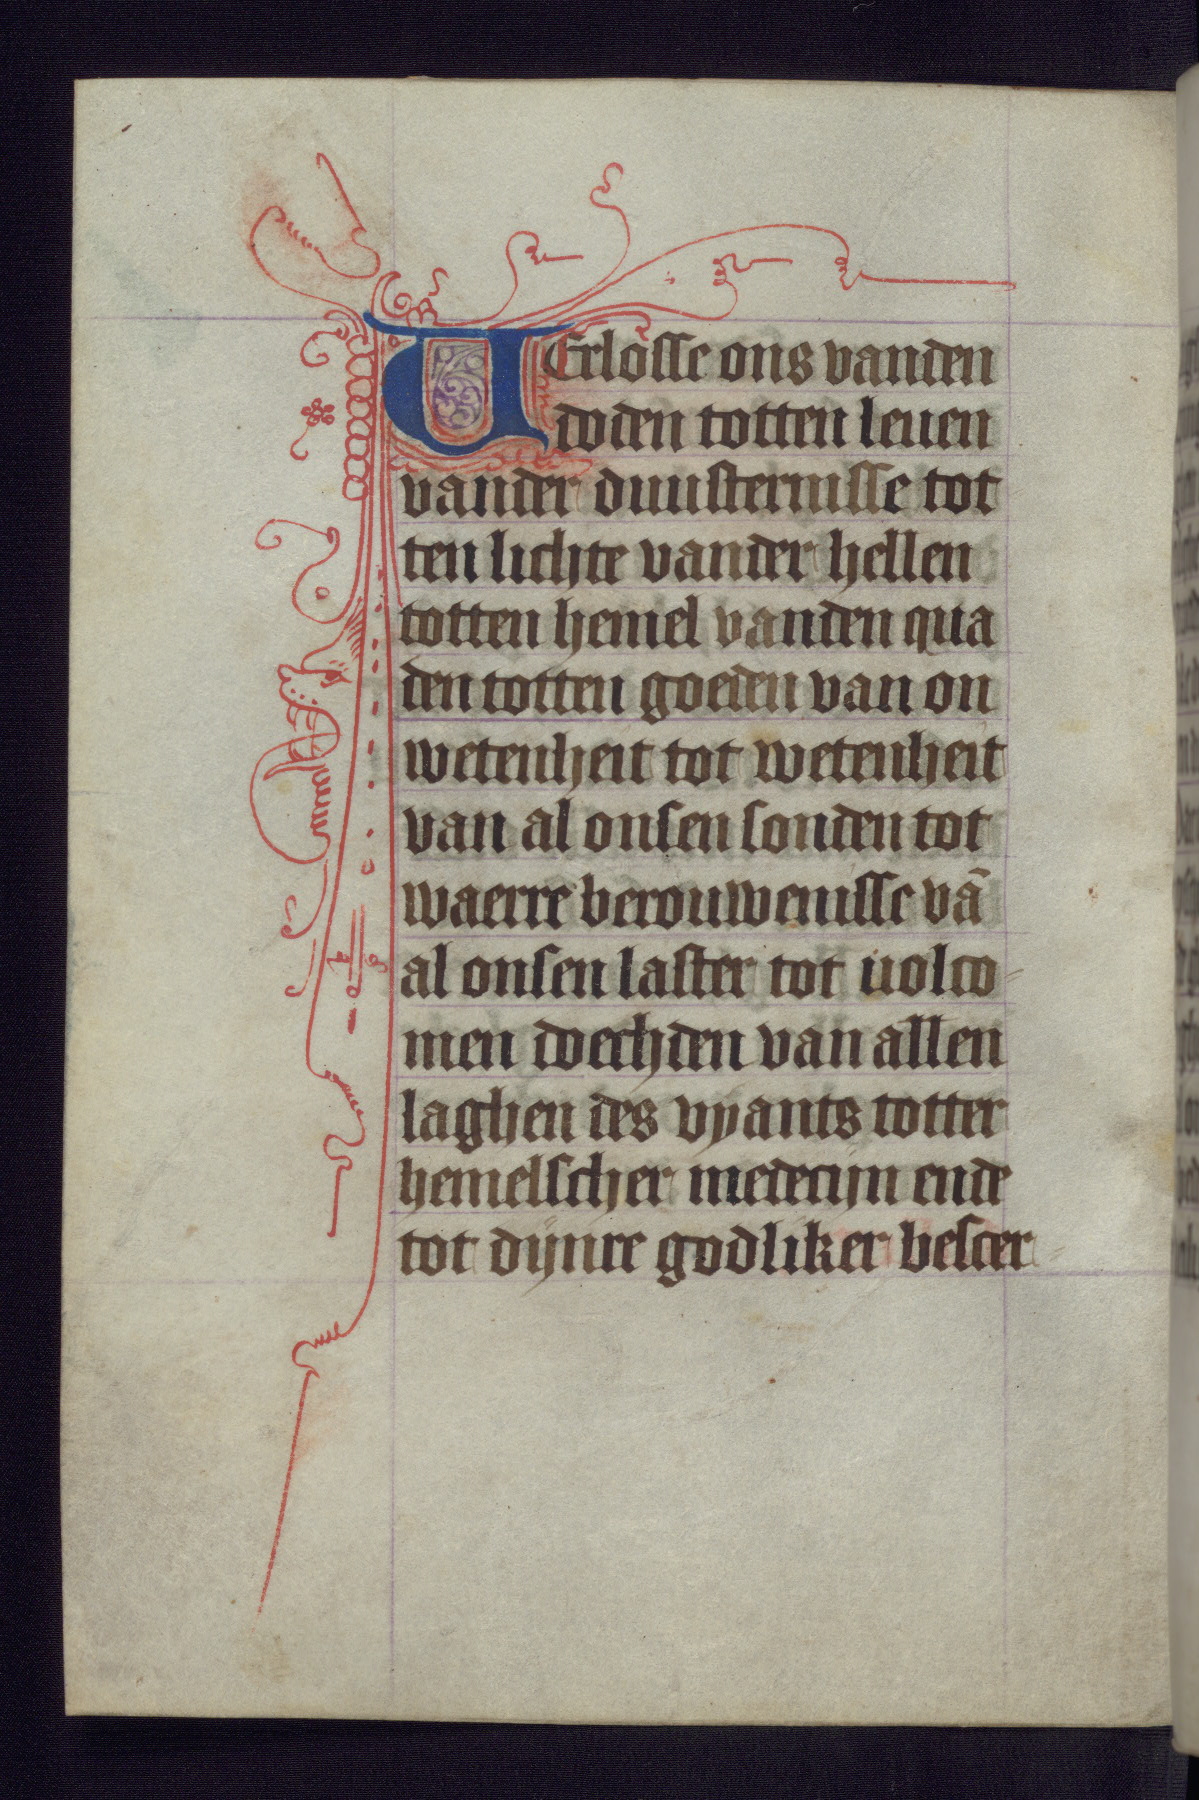 VErlosse ons vanden
doden totten leuen
vander duusternisse tot
ten lichte vander hellen
totten hemel vanden qua
den totten goeden van on
wetenheit tot wetenheit
van al onsen sonden tot
waerre berouwenisse vā
al onsen laster tot uolco
men doechden van allen
laghen des vyants totter
hemelscher medecijn ende
tot dijnre godliker bescer